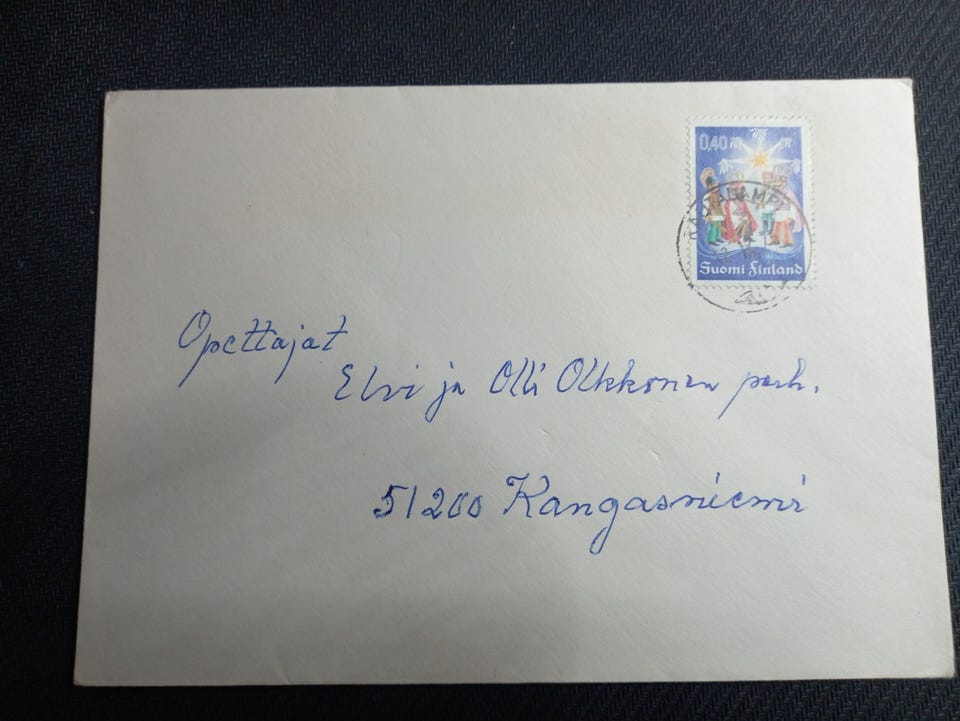 0,40
Suomi Finland
Opettajat
Elvi ja Olli Olkkonen perh.
51200 Kangasniemi